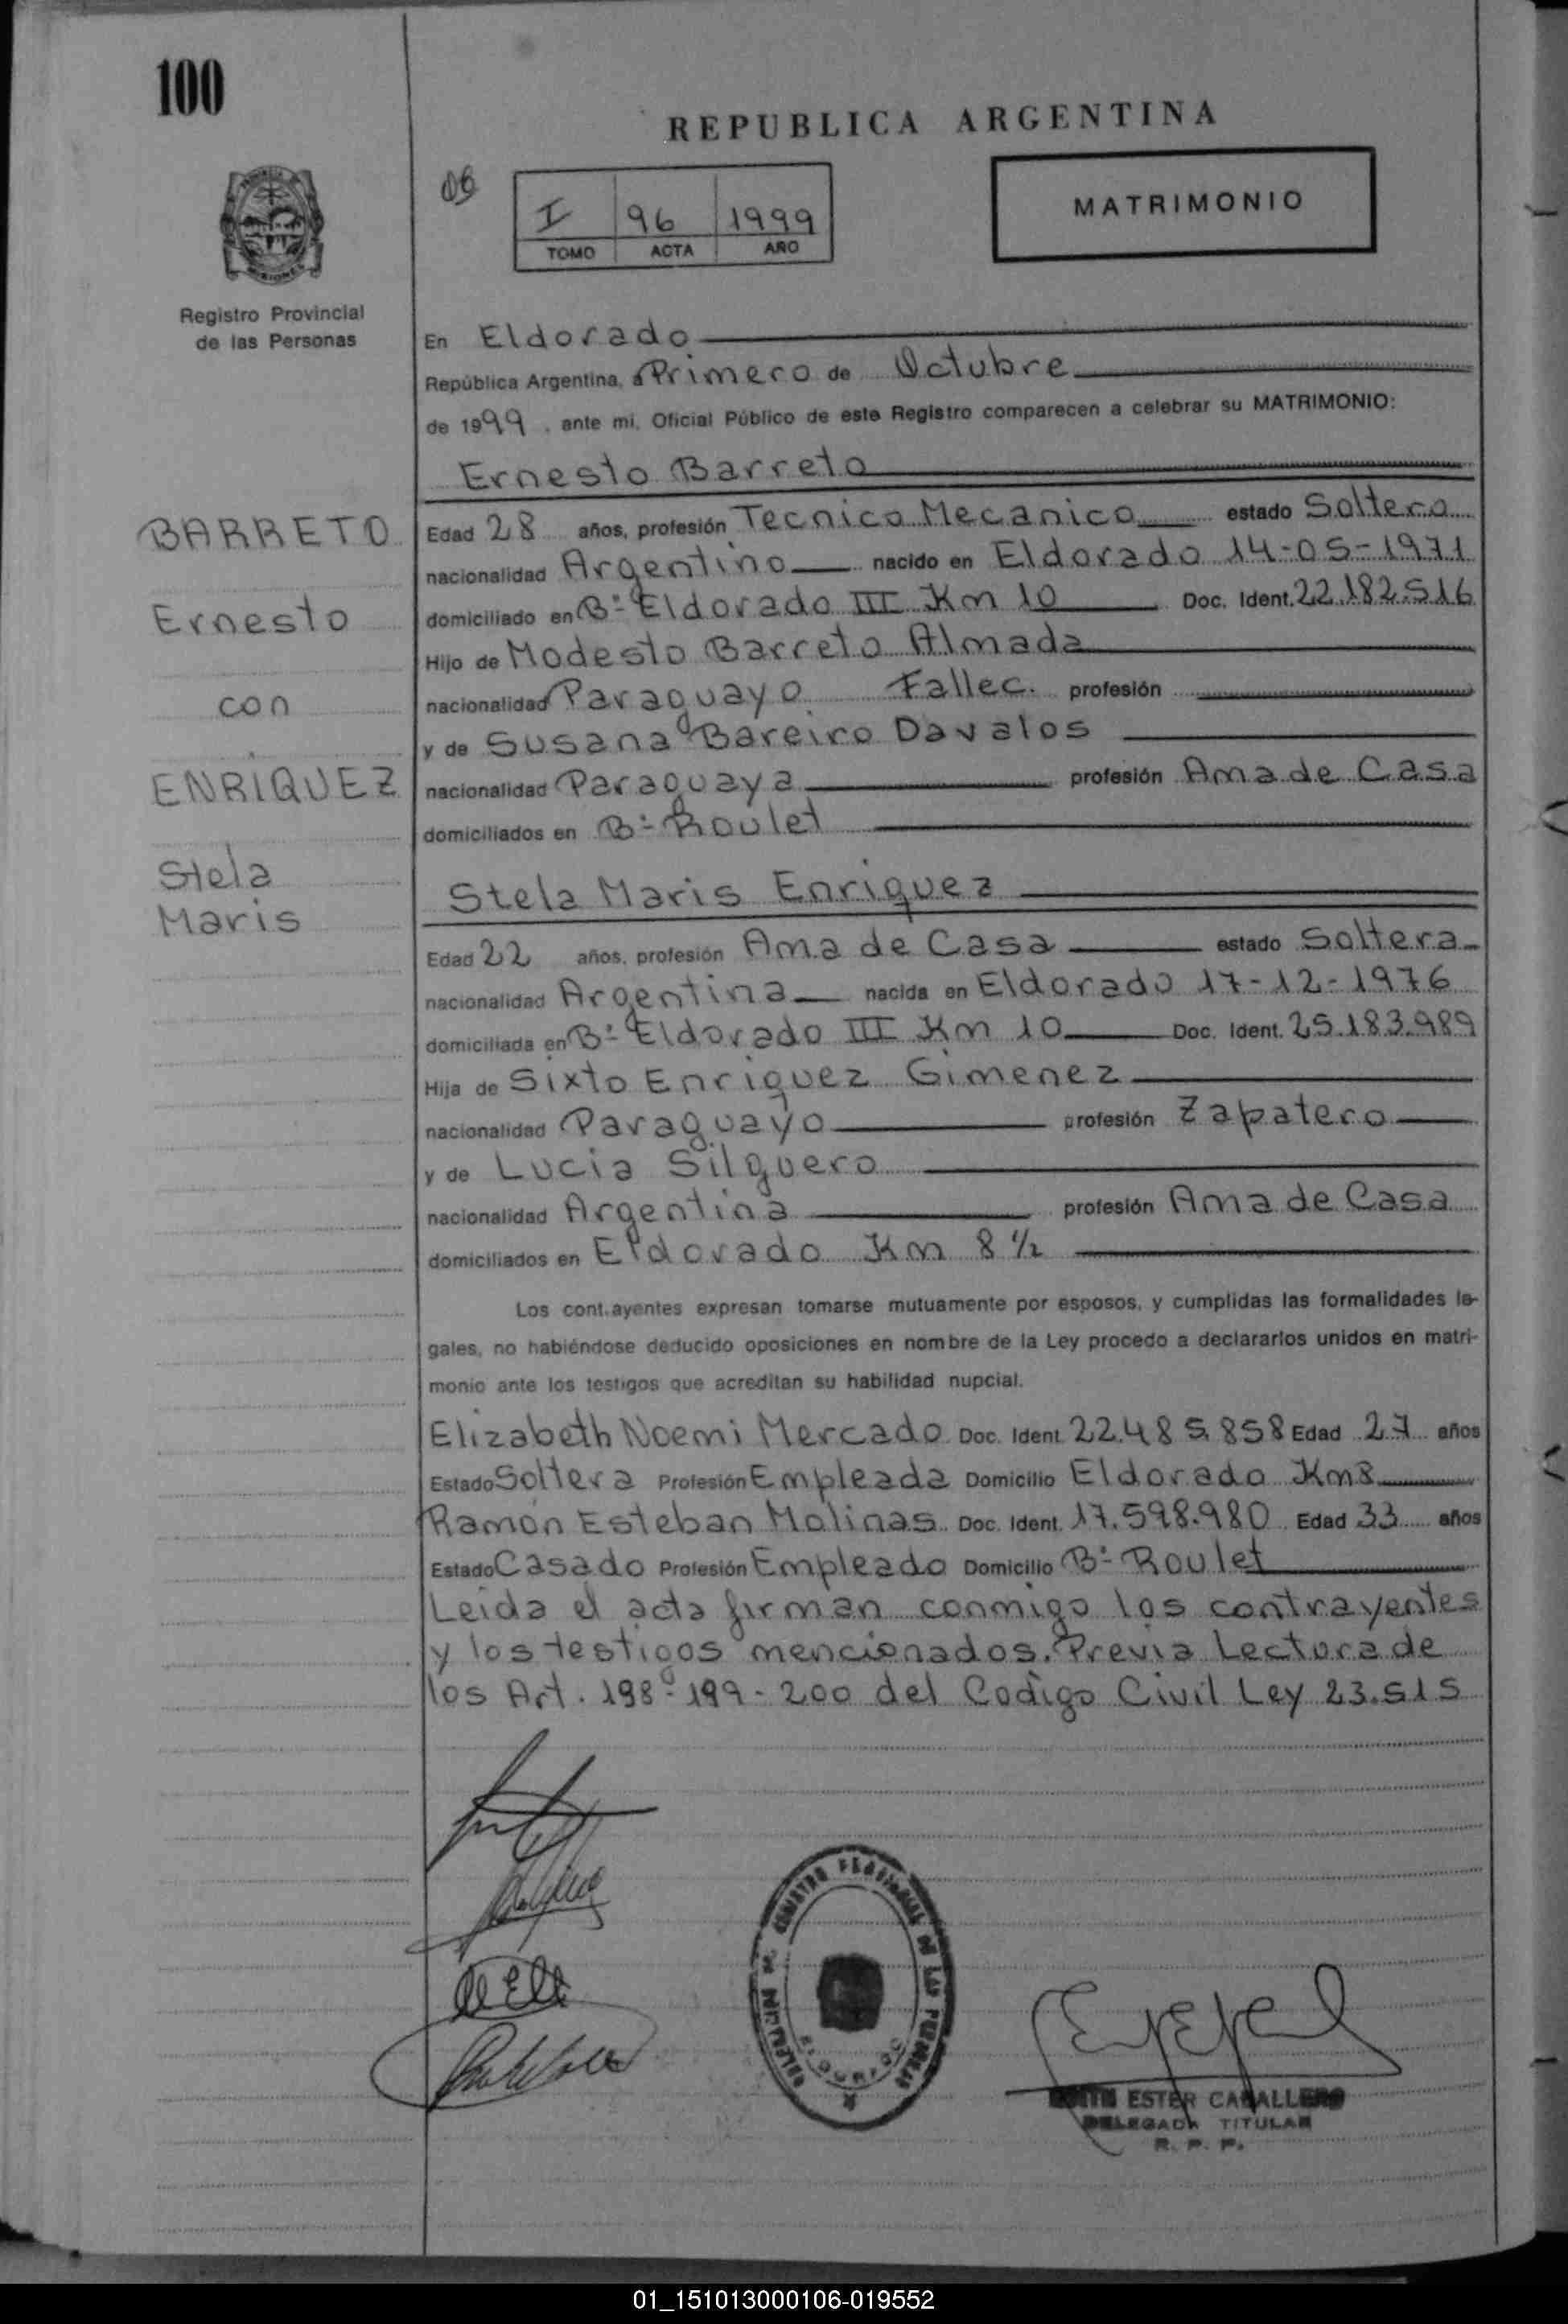 100
REPUBLICA ARGENTINA
I 96 1999
TOMO ACTA AÑO
MATRIMONIO
Registro Provincial
de las Personas
En Eldorado
República Argentina, a Primero de Octubre
de 1999, ante mi, Oficial Público de este Registro comparecen a celebrar su MATRIMONIO:
Ernesto Barreto
BARRETO
Ernesto
con
ENRIQUEZ
Stela
Maris
Edad 28 años, profesión Tecnico Mecanico estado Soltero
nacionalidad Argentino nacido en Eldorado 14-05-1971
domiciliado en Bº Eldorado III Km 10 Doc. Ident. 22.182.516
Hijo de Modesto Barreto Almada
nacionalidad Paraguayo Fallec. profesión
y de Susana Bareiro Davalos
nacionalidad Paraguaya profesión Ama de Casa
domiciliados en Bº Roulet
Stela Maris Enriquez
Edad 22 años, profesión Ama de Casa estado Soltera
nacionalidad Argentina nacida en Eldorado 17-12-1976
domiciliada en Bº Eldorado III Km 10 Doc. Ident. 25.183.989
Hija de Sixto Enriquez Gimenez
nacionalidad Paraguayo profesión Zapatero
y de Lucia Silguero
nacionalidad Argentina profesión Ama de Casa
domiciliados en Eldorado Km 8 1/2
Los cont.ayentes expresan tomarse mutuamente por esposos, y cumplidas las formalidades le-
gales, no habiéndose deducido oposiciones en nombre de la Ley procedo a declararlos unidos en matri-
monio ante los testigos que acreditan su habilidad nupcial.
Elizabeth Noemi Mercado Doc. Ident. 22.485.858 Edad 27 años
Estado Soltera Profesión Empleada Domicilio Eldorado Km8
Ramón Esteban Molinas Doc. Ident. 17.598.980 Edad 33 años
Estado Casado Profesión Empleado Domicilio Bº Roulet
Leida el acta firman conmigo los contrayentes
y los testigos mencionados. Previa Lectura de
los Art. 198-199-200 del Codigo Civil Ley 23.515
ESTER CABALLERO
DELEGADA TITULAR
R. P. P.
01_151013000106-019552